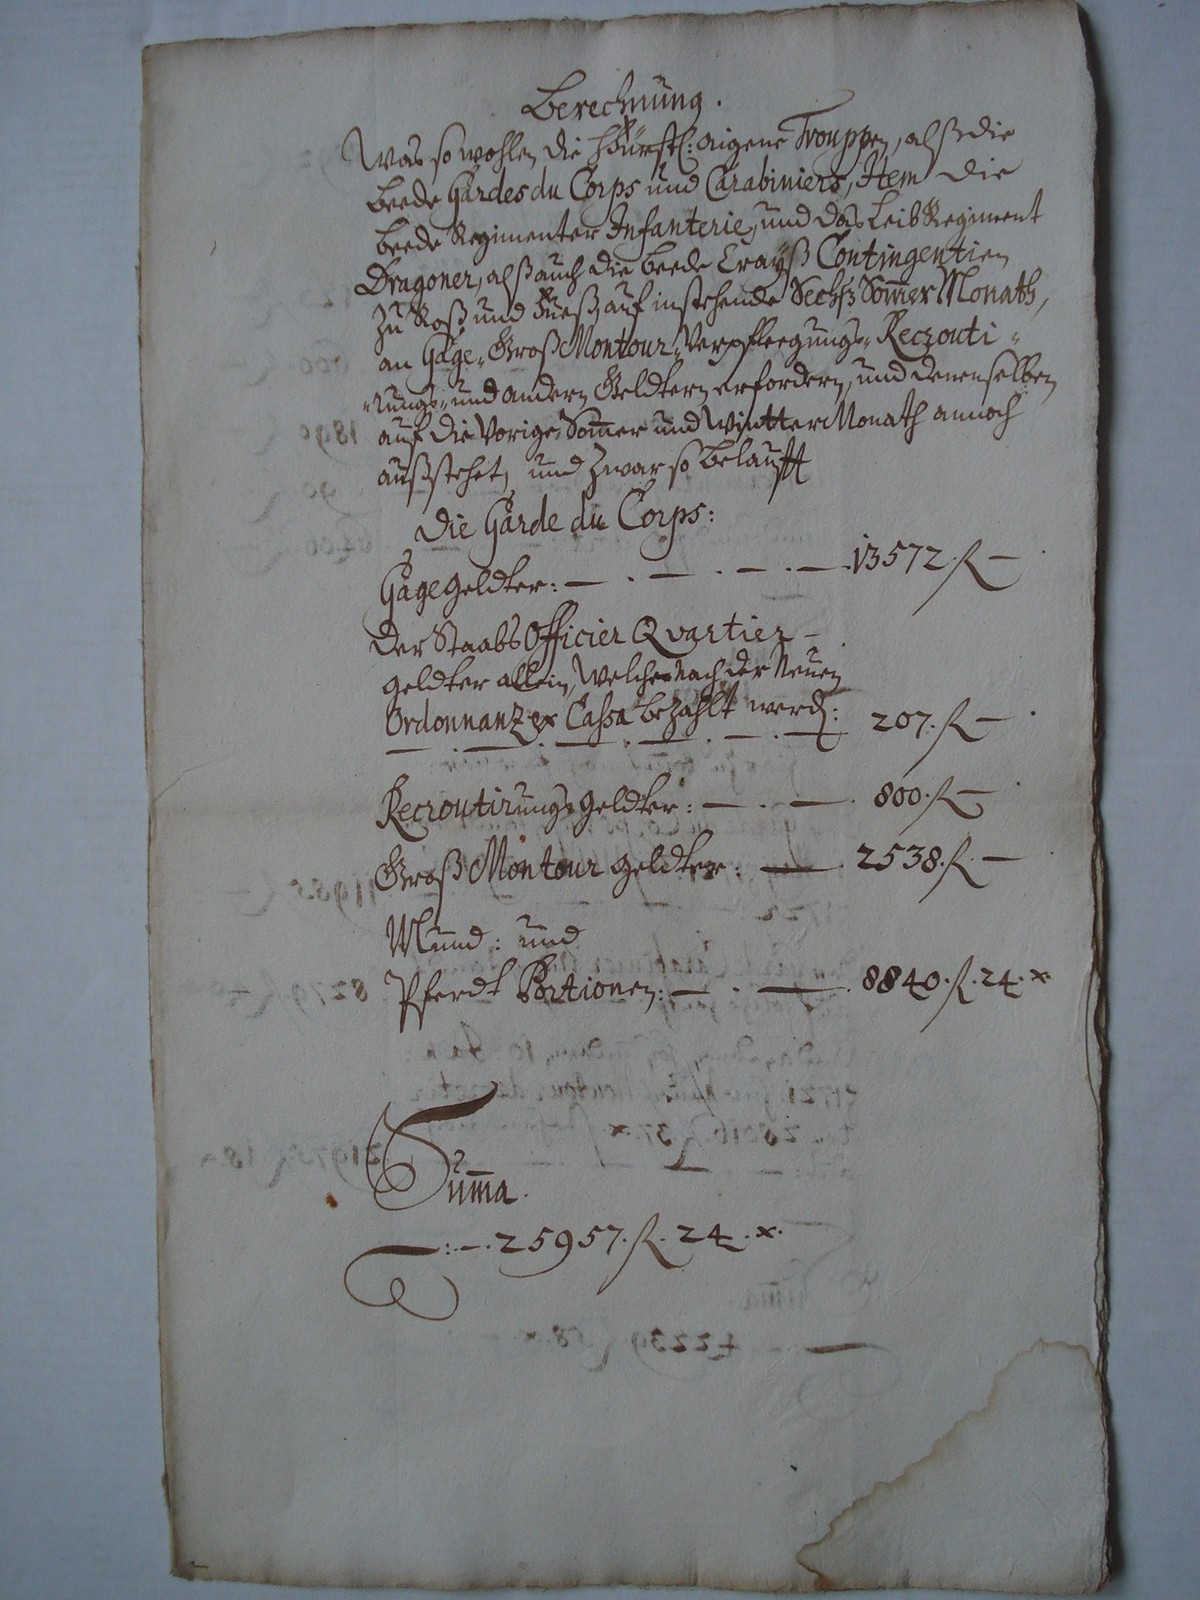 Berechnung.
Was so wohlen die hFürstl: aigene Trouppen, alß die
beede Gardes du Corps und Carabiniers, Item die
beede Regimenter Infanterie, und das Leib Regiment
Dragoner, alß auch die beede Crayß Contingentien
zu Roß und Fueß, auf instehende Sechß Som̄er Monath,
an Gage- Groß Montour- Verpfleegungs- Recrouti-
-rungs- und andern Geldtern erfordern, und denenselben
auf die Vorige Som̄er und Wintter Monath annoch
außstehet, und zwar so belaufft
Die Garde du Corps:
Gage geldter: — . — . — . — 13572. fl —
Der Staabs Officier Quartier-
geldter allein, Welche nach der Neuen
Ordonnanz ex Cassa bezahlt werd: 207. fl —
Recroutirungs geldter: — . — . 800. fl —
Groß Montour geldter: — . 2538. fl. —
Mund: und
Pferdt Portionen: — . — . 8840. fl. 24. x
Sum̄a.
—:—. 25957. fl. 24. x.